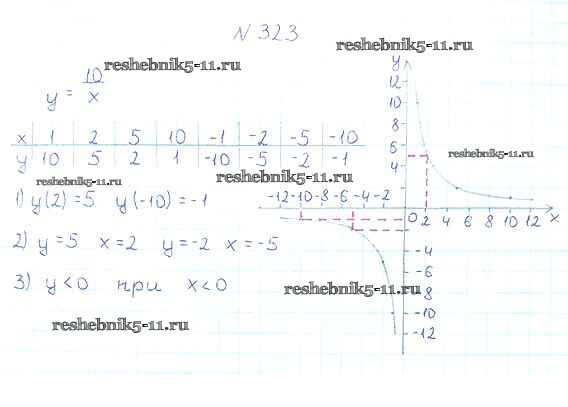 N 323
reshebnik5-11.ru
reshebnik5-11.ru
y = 10/x
x 1 2 5 10 -1 -2 -5 -10
y 10 5 2 1 -10 -5 -2 -1
reshebnik5-11.ru
reshebnik5-11.ru
reshebnik5-11.ru
1) y(2) = 5 y(-10) = -1
2) y = 5 x = 2 y = -2 x = -5
3) y < 0 при x < 0
reshebnik5-11.ru
reshebnik5-11.ru
y
12
10
8
6
4
-12 -10 -8 -6 -4 -2
0 2 4 6 8 10 12 x
-4
-6
-8
-10
-12